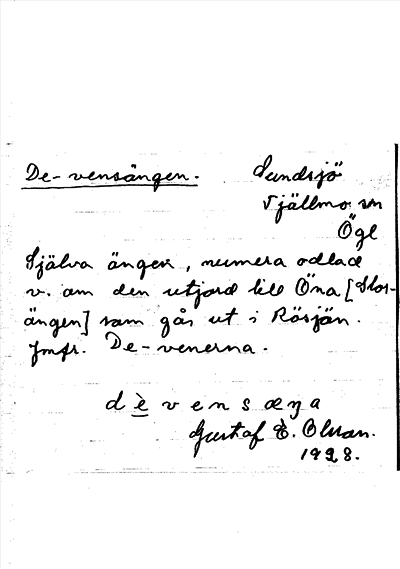 De-vensängen. Sundsjö
Tjällmo sn
Ögl
Själva ängen, numera odlad
v. om den utjord till Öna [Stor-
ängen] som går ut i Rösjön.
Jmfr. De-venerna.
d è v e n s æŋa
Gustaf E. Olsson.
1928.